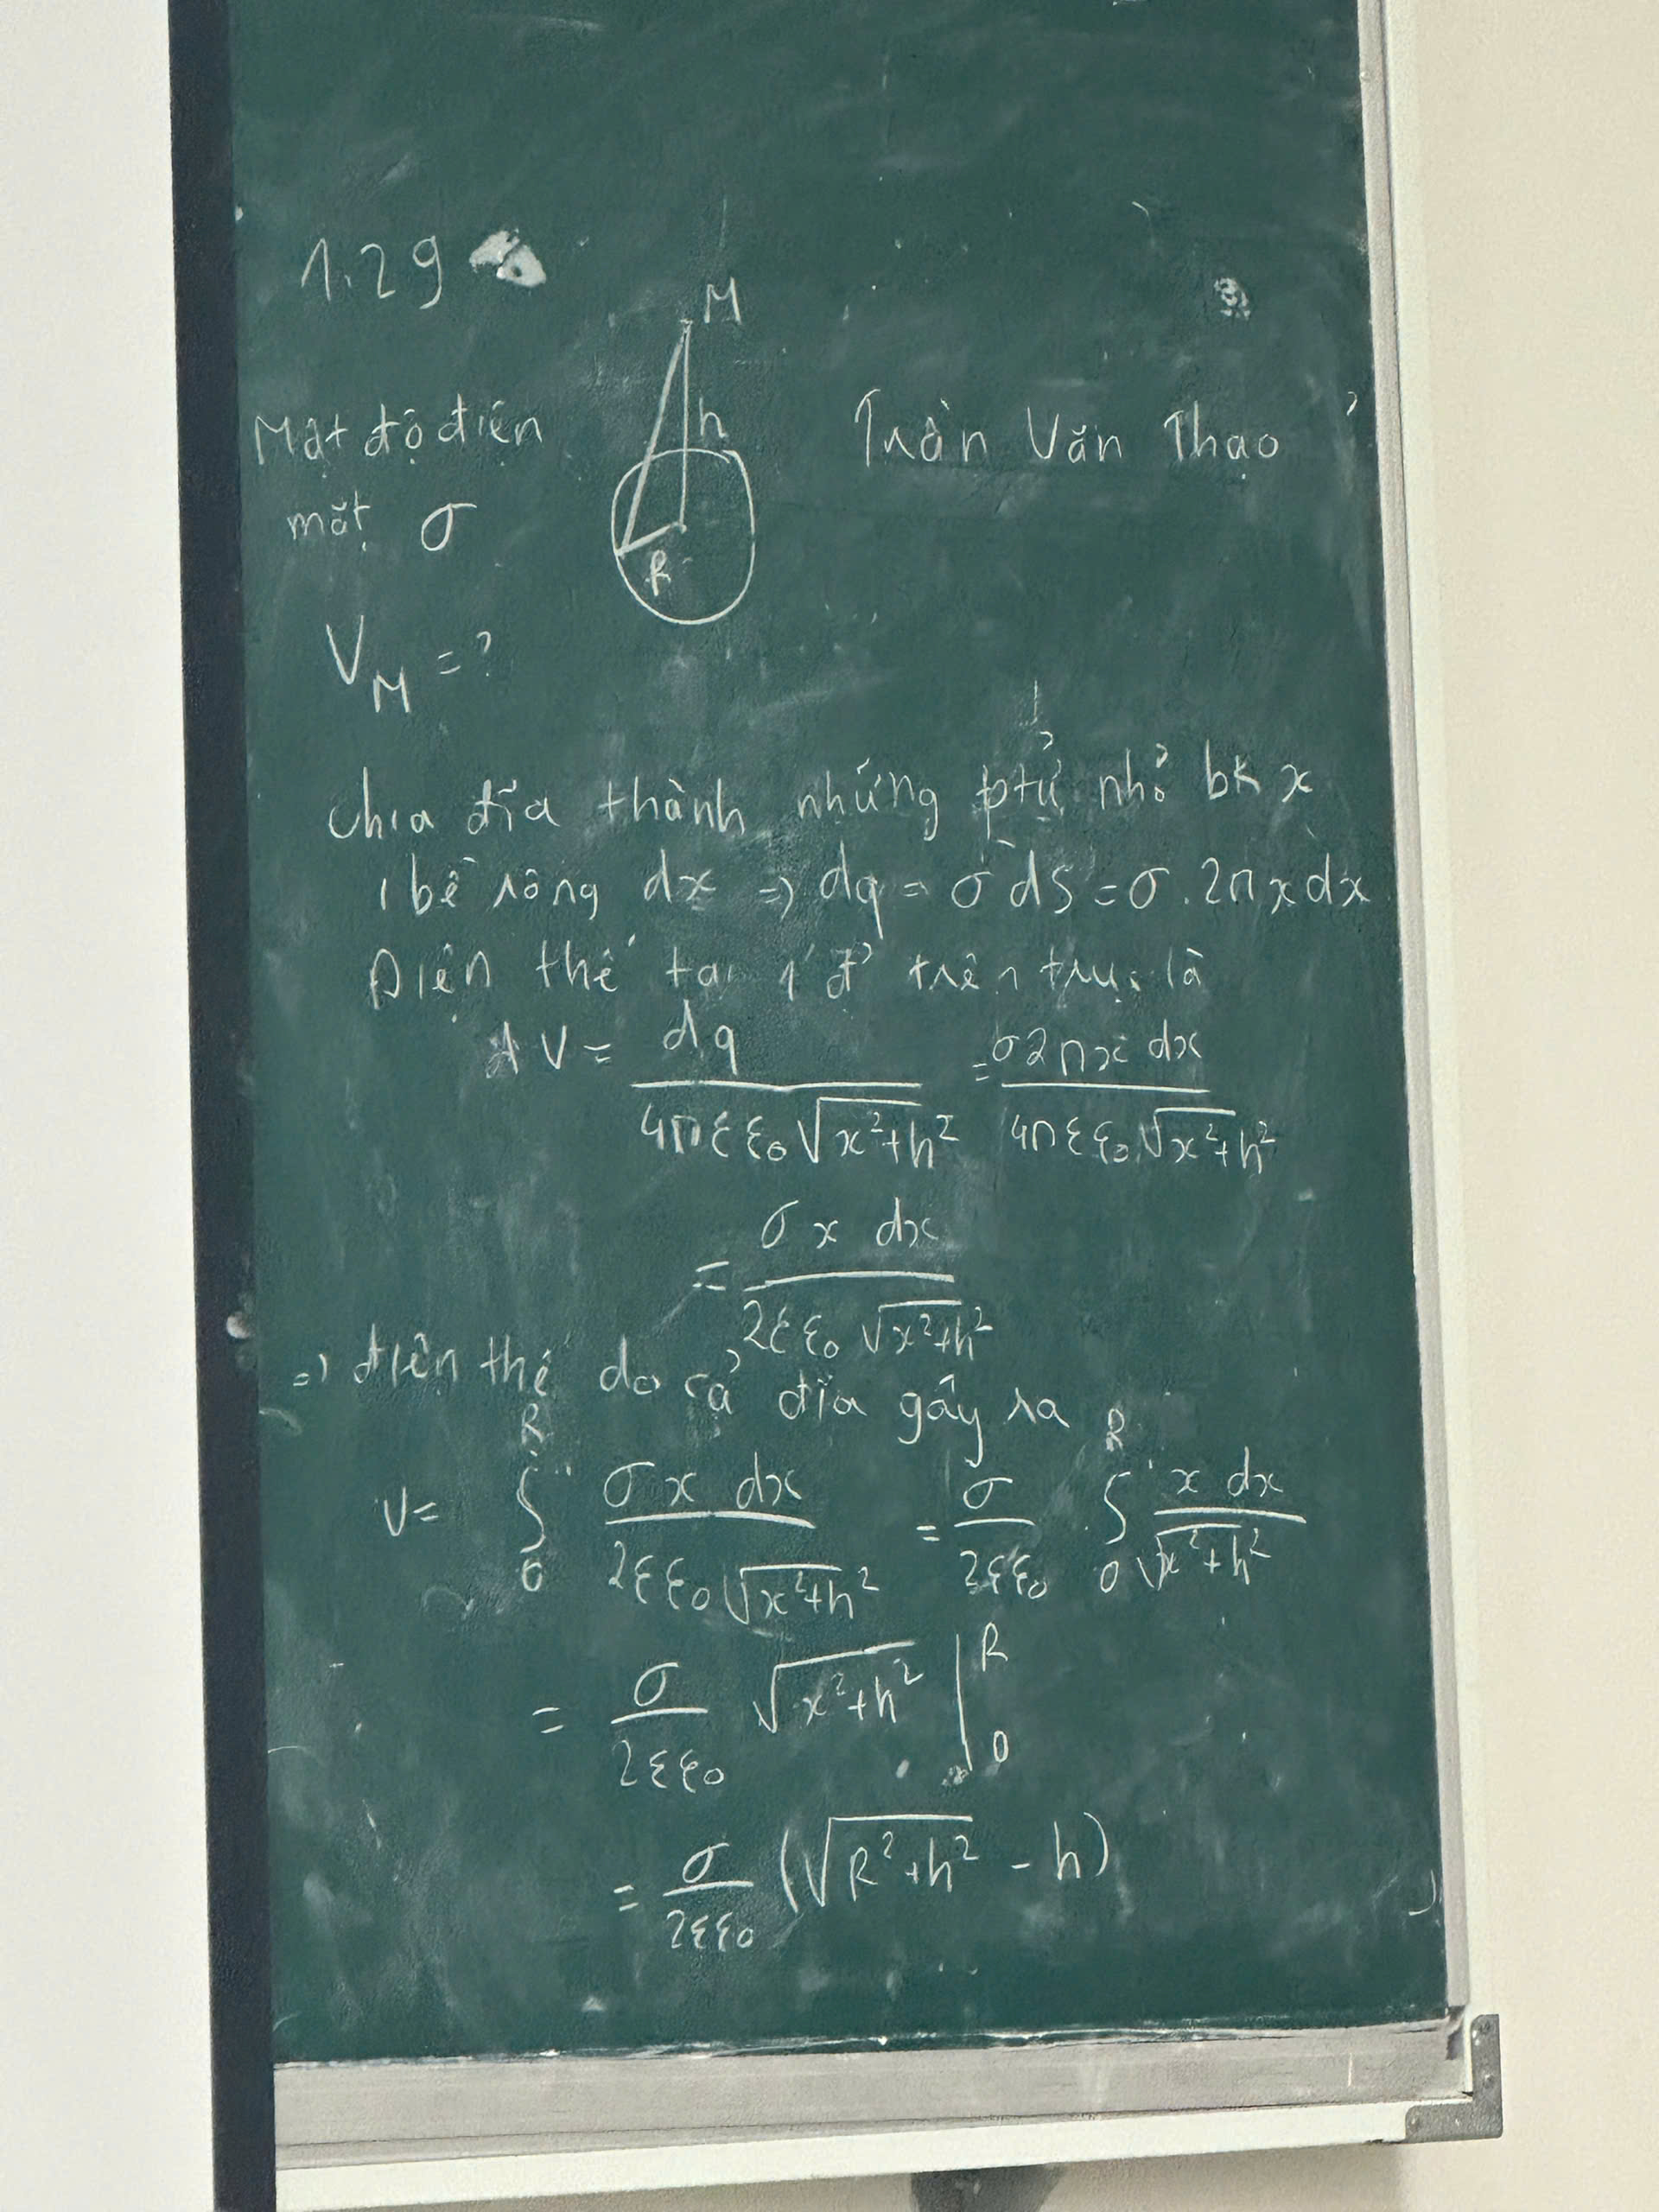 1.29
M
h
R
Mật độ điện
mặt σ
Trần Văn Thạo
V_M = ?
chia đĩa thành những ptử nhỏ bk x
1 bề rông dx => dq = σ dS = σ . 2π x dx
Điện thế tại 1 đ' trên trục là
dV = dq / (4π ε ε₀ √(x² + h²)) = σ 2π x dx / (4π ε ε₀ √(x² + h²))
= σ x dx / (2 ε ε₀ √(x² + h²))
=> điện thế do cả đĩa gây ra
V = ∫₀ᴿ σ x dx / (2 ε ε₀ √(x² + h²)) = σ / (2 ε ε₀) . ∫₀ᴿ x dx / √(x² + h²)
= σ / (2 ε ε₀) √(x² + h²) |₀ᴿ
= σ / (2 ε ε₀) (√(R² + h²) - h)